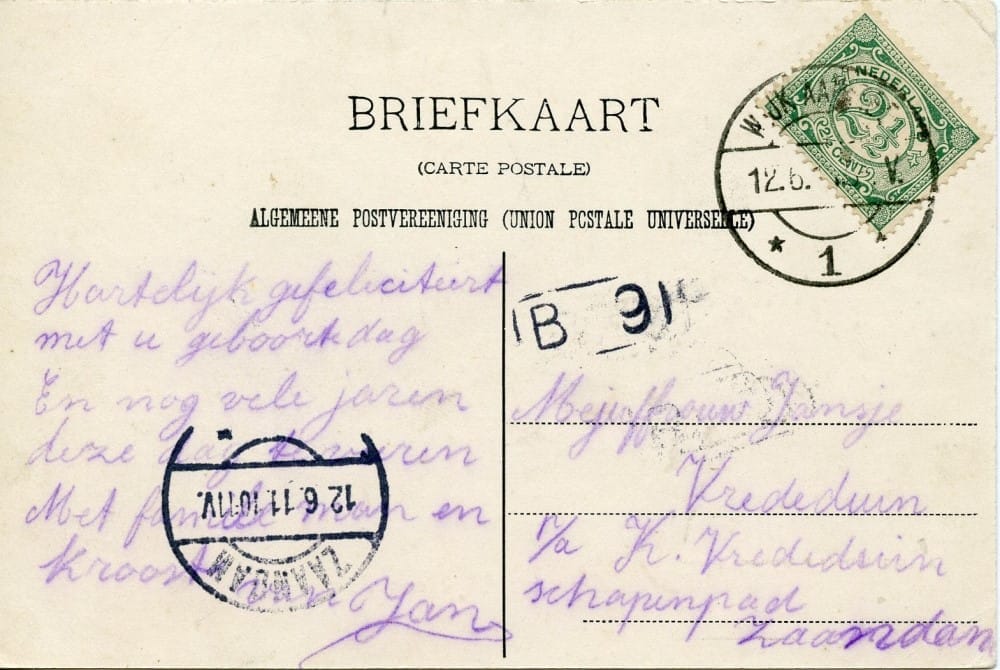 BRIEFKAART
(CARTE POSTALE)
ALGEMEENE POSTVEREENIGING (UNION POSTALE UNIVERSELLE)
NEDERLAND
2 1/2
(2½ CENT)
WIJK AAN
12.6. V.
1
B 91
Hartelijk gefeliciteert
met u geboortedag
En nog vele jaren
deze dag
Met familie man en
Kroost van
Jan
12.6.11.10-11V.
ZAANDAM
Mejuffrouw Jansje
Vrededuin
p/a K. Vrededuin
schapenpad
Zaandam